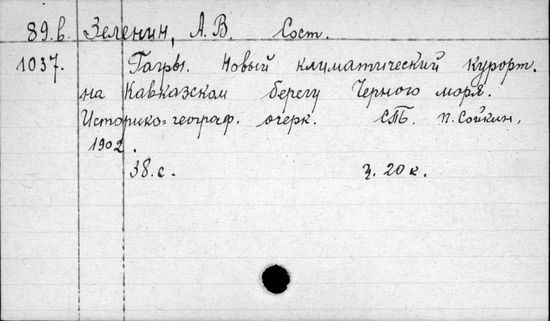 89.в. Зеленин, А.В. Сост.
1037. Гагры. Новый климатический курорт.
на Кавказском берегу Черного моря.
Историко-географ. очерк. СПб. П. Сойкин.
1902.
38. с. ц. 20 к.